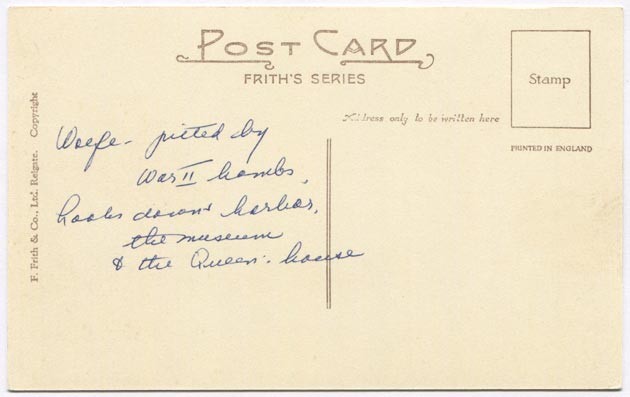 POST CARD
FRITH'S SERIES
Stamp
Address only to be written here
PRINTED IN ENGLAND
F. Frith & Co., Ltd. Reigate. Copyright
Wolfe - pitted by
War II bombs,
Looks down harbor,
the museum
& the Queen's house